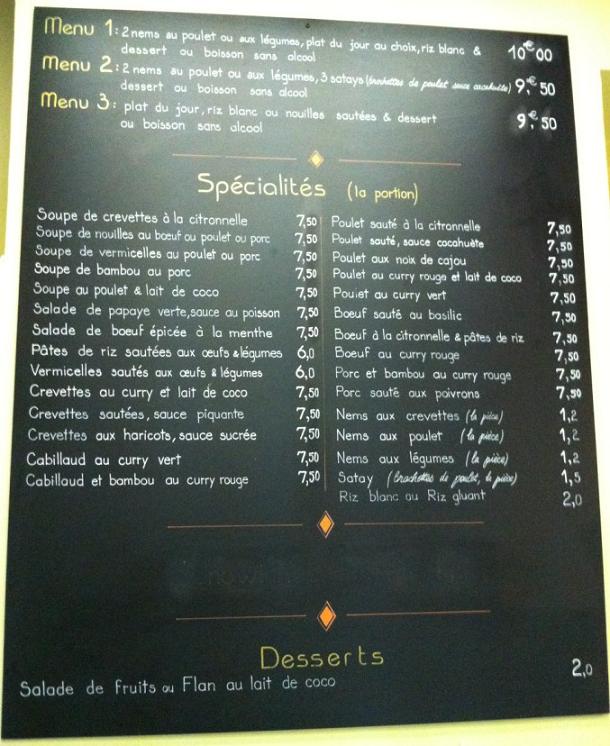 Menu 1: 2 nems au poulet ou aux légumes, plat du jour au choix, riz blanc & 10€00
dessert ou boisson sans alcool
Menu 2: 2 nems au poulet ou aux légumes, 3 satays (brochettes de poulet sauce cacahuète) 9,€50
dessert ou boisson sans alcool
Menu 3: plat du jour, riz blanc ou nouilles sautées & dessert 9,€50
ou boisson sans alcool
Spécialités (la portion)
Soupe de crevettes à la citronnelle 7,50
Soupe de nouilles au bœuf ou poulet ou porc 7,50
Soupe de vermicelles au poulet ou porc 7,50
Soupe de bambou au porc 7,50
Soupe au poulet & lait de coco 7,50
Salade de papaye verte, sauce au poisson 7,50
Salade de boeuf épicée à la menthe 7,50
Pâtes de riz sautées aux œufs & légumes 6,0
Vermicelles sautés aux œufs & légumes 6,0
Crevettes au curry et lait de coco 7,50
Crevettes sautées, sauce piquante 7,50
Crevettes aux haricots, sauce sucrée 7,50
Cabillaud au curry vert 7,50
Cabillaud et bambou au curry rouge 7,50
Poulet sauté à la citronnelle 7,50
Poulet sauté, sauce cacahuète 7,50
Poulet aux noix de cajou 7,50
Poulet au curry rouge et lait de coco 7,50
Poulet au curry vert 7,50
Boeuf sauté au basilic 7,50
Boeuf à la citronnelle & pâtes de riz 7,50
Boeuf au curry rouge 7,50
Porc et bambou au curry rouge 7,50
Porc sauté aux poivrons 7,50
Nems aux crevettes (la pièce) 1,2
Nems au poulet (la pièce) 1,2
Nems aux légumes (la pièce) 1,2
Satay (brochettes de poulet, la pièce) 1,5
Riz blanc ou Riz gluant 2,0
Desserts
Salade de fruits ou Flan au lait de coco 2,0